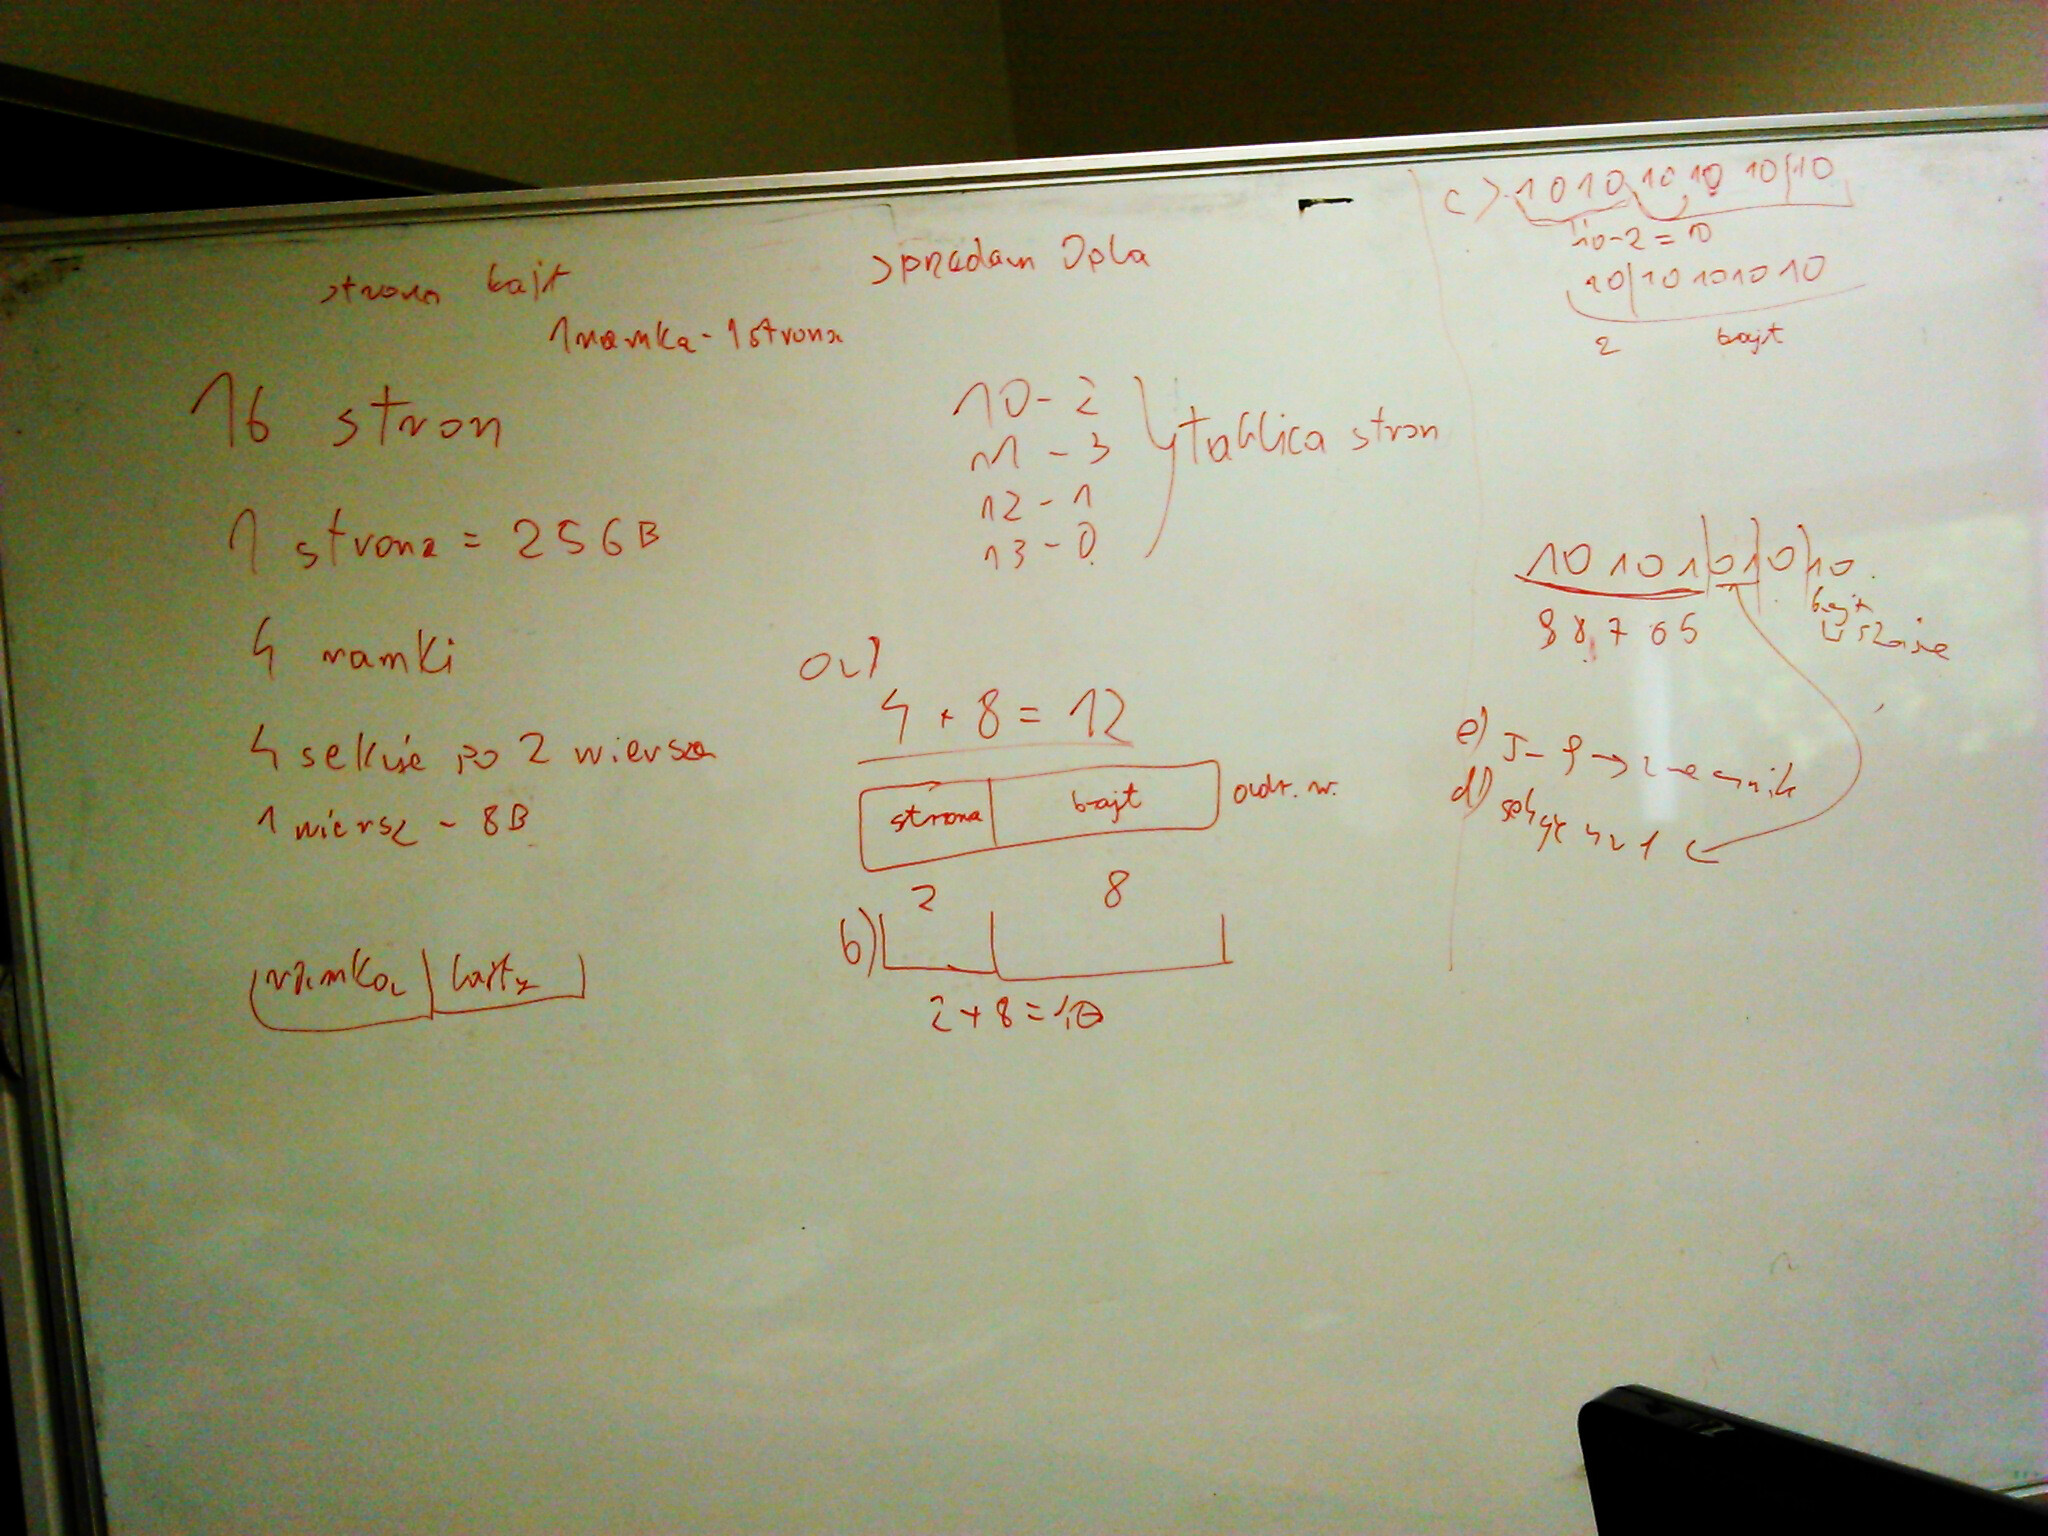 strona bajt
1 ramka - 1 strona
16 stron
1 strona = 256B
4 ramki
4 sekcje po 2 wiersze
1 wiersz - 8B
ramka bajty
sprzedam Opla
10 - 2
11 - 3
12 - 1
13 - 0
tablica stron
a)
4 + 8 = 12
strona bajt adr. w.
2 8
b)
2 + 8 = 10
c) 1010 10 10 10 10
10 - 2 = 10
10 10 10 10 10
2 bajt
10 10 1 01 0 10
9 8 7 6 5
bajt
e)
d) sekcje nr 1